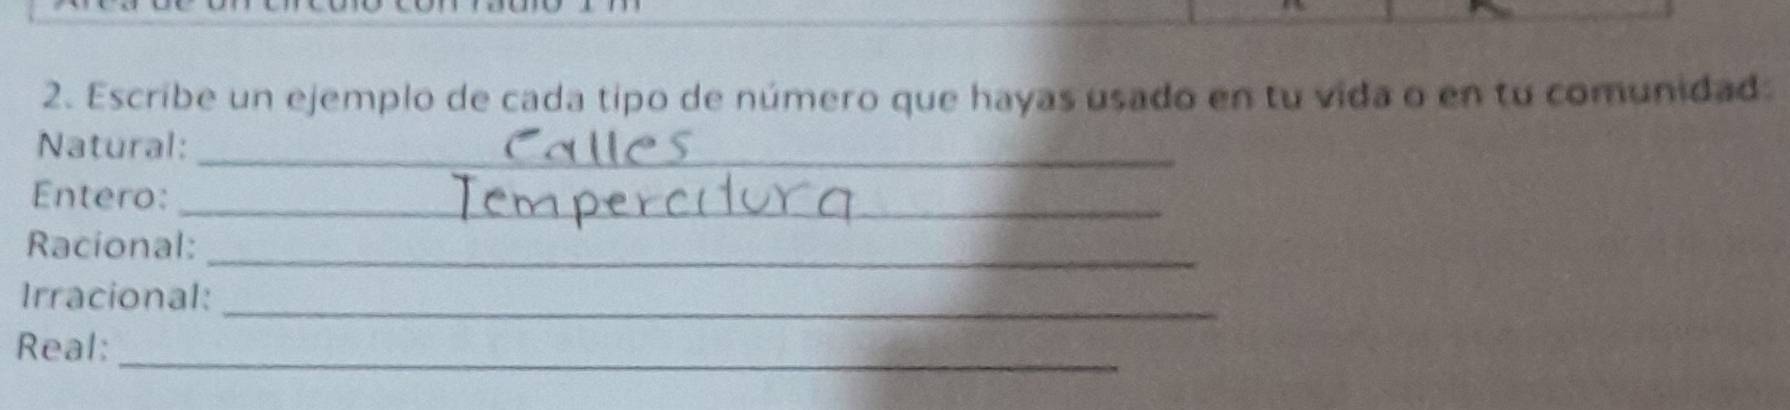 Área de un círculo con radio 1 m
2. Escribe un ejemplo de cada tipo de número que hayas usado en tu vida o en tu comunidad:
Natural: Calles
Entero: Temperatura
Racional:
Irracional:
Real: